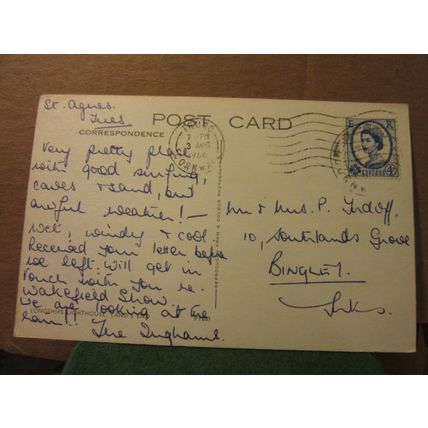 St. Agnes.
Tues.
POST CARD
CORRESPONDENCE
TRURO
7-PM
3 AUG
1966
CORNWALL
E R
4D
Very pretty place
with good surfing,
caves & sand, but
awful weather! -
wet, windy & cool.
Received your letter before
we left. Will get in
touch with you re.
Wakefield Show.
We are looking at the
rain!!
The Inghams.
LONGSHIPS LIGHTHOUSE, LAND'S END
Mr & Mrs. P.
10, Southlands Grove
BINGLEY.
Yorks.